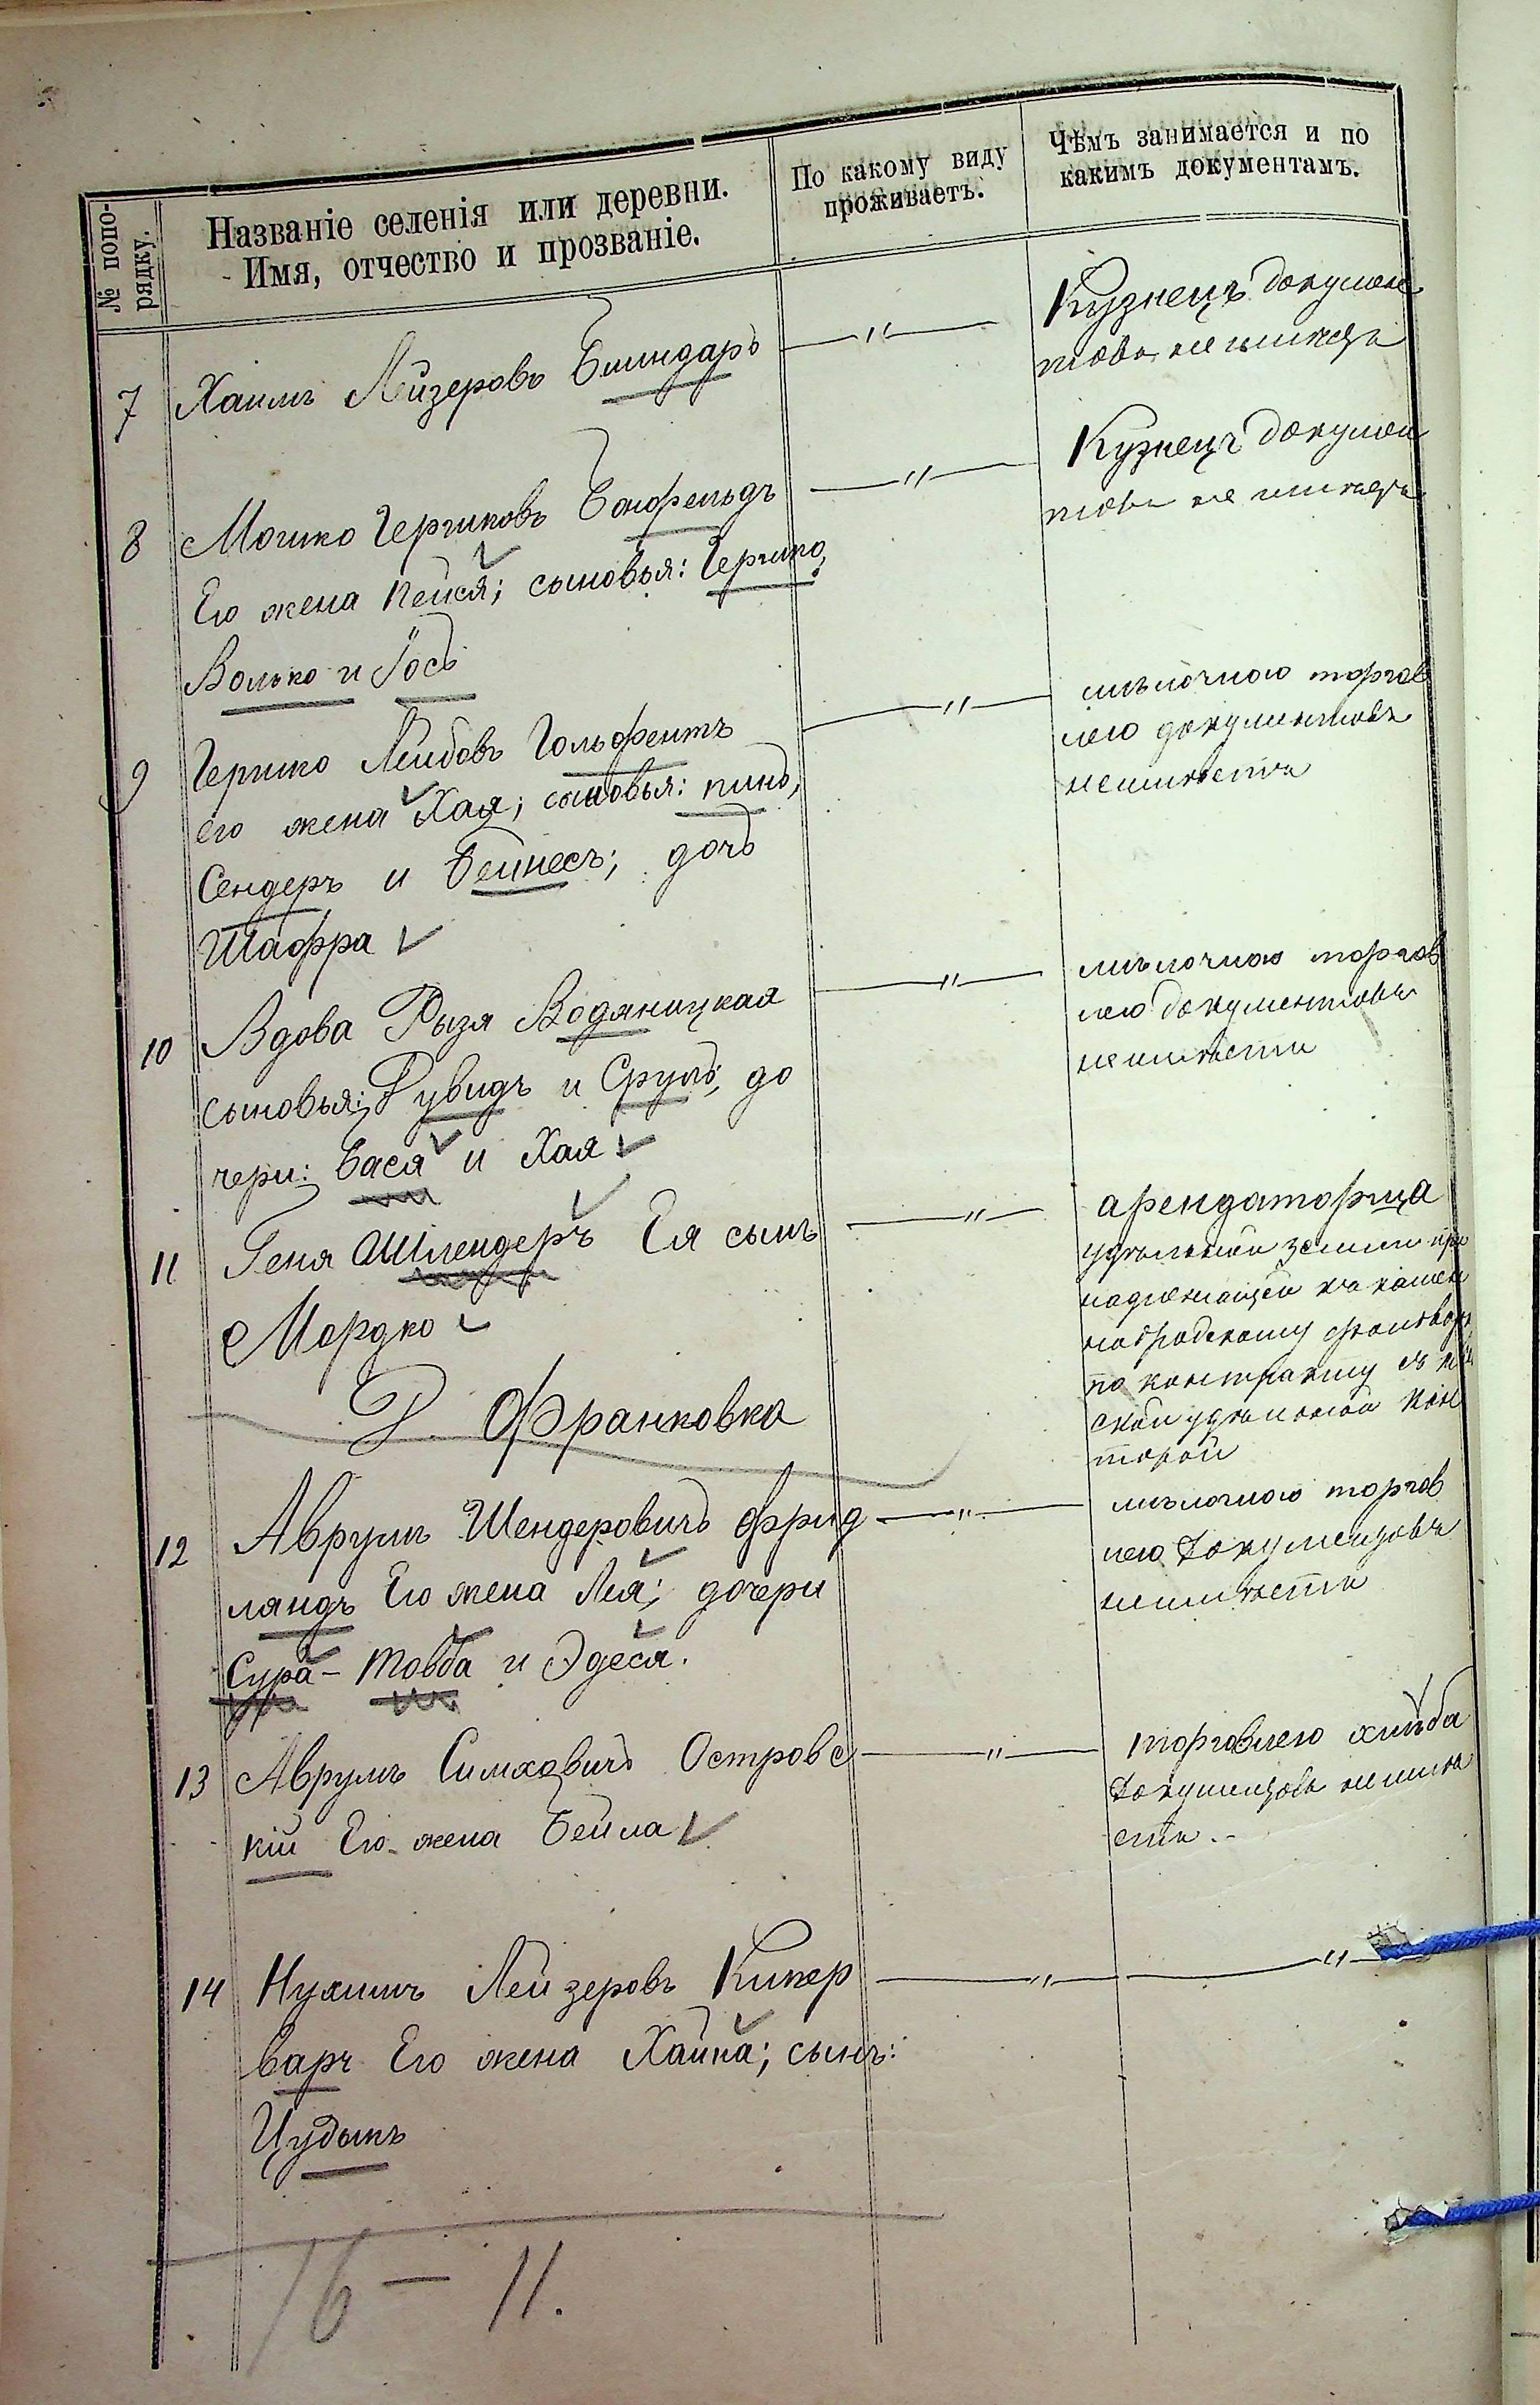 № попо-
рядку.
Названіе селенія или деревни.
Имя, отчество и прозваніе.
По какому виду
проживаетъ.
Чѣмъ занимается и по
какимъ документамъ.
7 Хаимъ Лейзеровъ Блиндаръ — " — Кузнецъ докумен
товъ не имѣетъ
8 Мошко Гершковъ Бонфельдъ — " — Кузнецъ докумен
товъ не имѣетъ
Его жена Пейся; сыновья: Гершко,
Волько и Іось
9 Гершко Лейбовъ Гольфентъ — " — мѣлочною торгов
лею документовъ
неимѣетъ
его жена Хая; сыновья: пинь,
Сендеръ и Бейнесъ; дочь
Шафра
10 Вдова Рызя Водяницкая — " — мѣлочною торгов
лею документовъ
неимѣетъ
сыновья: Рувидъ и Сруль; до
чери: Бася и Хая
11 Геня Шлендеръ Ея сынъ — " — арендаторща
удѣльной земли при
надлежащей къ
по контракту съ
ской удѣльной кон
торой
Мордко
Д. Франковка
12 Аврумъ Шендеровичъ Фрид — " — мѣлочною торгов
лею документовъ
неимѣетъ
ляндъ Его жена Лея; дочери
Сура - Товба и Эдеся.
13 Аврумъ Симховичъ Островс — " — торговлею хлѣба
документовъ неимѣ
етъ. -
кій Его жена Бейла
14 Нухимъ Лейзеровъ Кипер — " — — " —
варъ Его жена Хайка; сынъ:
Цудыкъ
16 — 11.